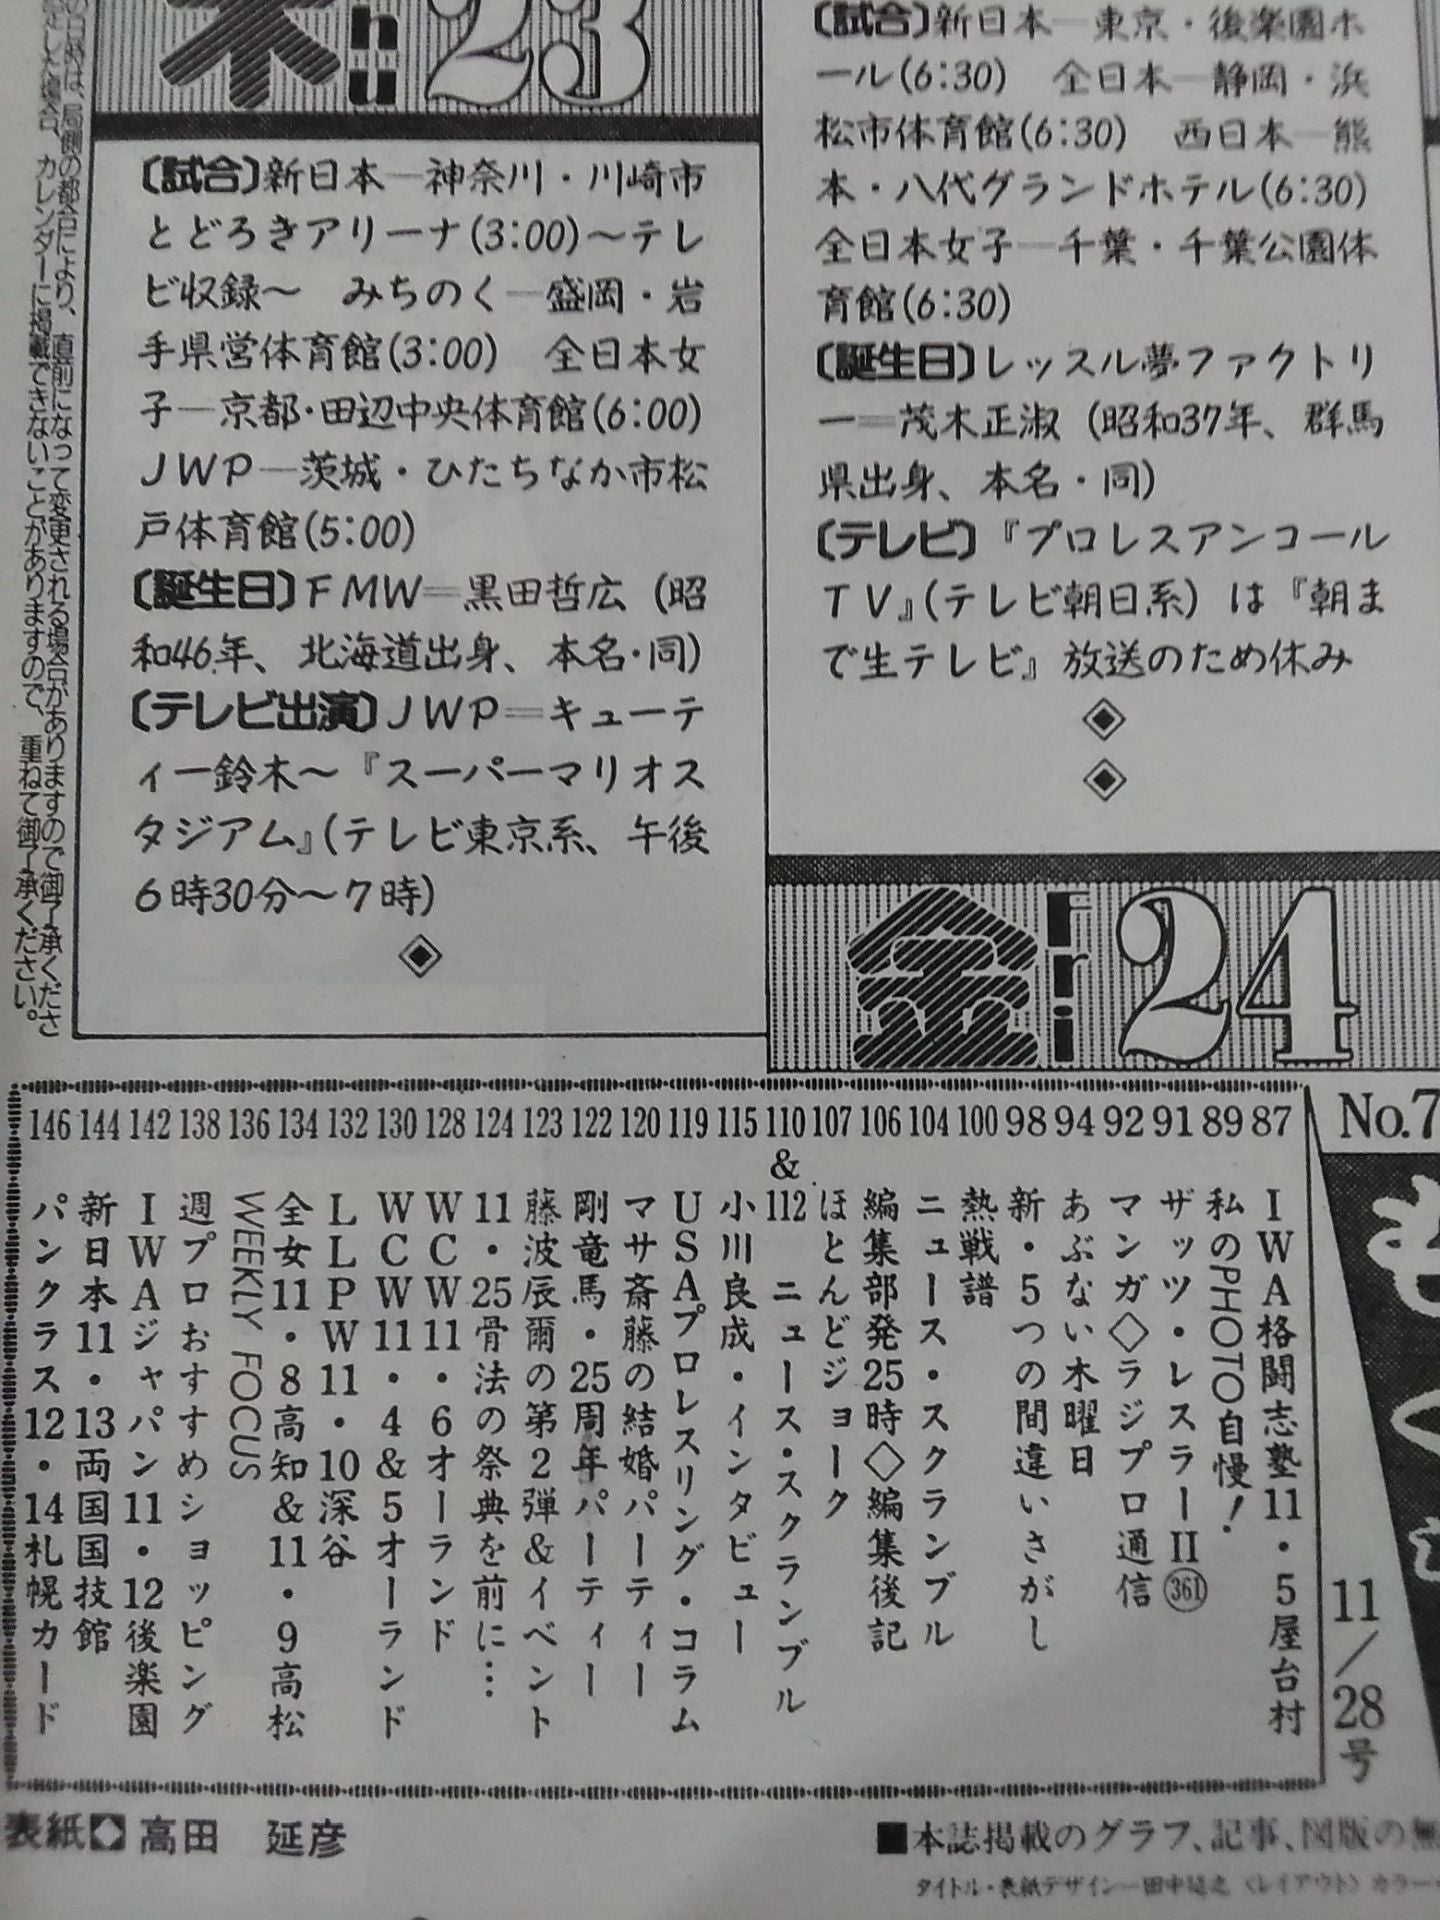 木 Thu 23
〔試合〕新日本―神奈川・川崎市
とどろきアリーナ(3:00)〜テレ
ビ収録〜　みちのく―盛岡・岩
手県営体育館(3:00)　全日本女
子―京都・田辺中央体育館(6:00)
JWP―茨城・ひたちなか市松
戸体育館(5:00)
〔誕生日〕FMW＝黒田哲広（昭
和46年、北海道出身、本名・同）
〔テレビ出演〕JWP＝キューテ
ィー鈴木〜『スーパーマリオス
タジアム』(テレビ東京系、午後
6時30分〜7時)
〔試合〕新日本―東京・後楽園ホ
ール(6:30)　全日本―静岡・浜
松市体育館(6:30)　西日本―熊
本・八代グランドホテル(6:30)
全日本女子―千葉・千葉公園体
育館(6:30)
〔誕生日〕レッスル夢ファクトリ
ー＝茂木正淑（昭和37年、群馬
県出身、本名・同）
〔テレビ〕『プロレスアンコール
TV』(テレビ朝日系）は『朝ま
で生テレビ』放送のため休み
金 Fri 24
は、局側の都合により、直前になって変更される場合がありますので御了承くださ
した場合、カレンダーに掲載できないことがありますので、重ねて御了承ください。
No.7
11／28号
87 IWA格闘志塾11・5屋台村
89 私のPHOTO自慢！
91 ザッツ・レスラーII361
92 マンガ◇ラジプロ通信
94 あぶない木曜日
98 新・5つの間違いさがし
100 熱戦譜
104 ニュース・スクランブル
106 編集部発25時◇編集後記
107 ほとんどジョーク
110&112 ニュース・スクランブル
115 小川良成・インタビュー
119 USAプロレスリング・コラム
120 マサ斎藤の結婚パーティー
122 剛竜馬・25周年パーティー
123 藤波辰爾の第2弾&イベント
124 11・25骨法の祭典を前に…
128 WCW11・6オーランド
130 WCW11・4&5オーランド
132 LLPW11・10深谷
134 全女11・8高知&11・9高松
136 WEEKLY FOCUS
138 週プロおすすめショッピング
142 IWAジャパン11・12後楽園
144 新日本11・13両国国技館
146 パンクラス12・14札幌カード
表紙 高田　延彦
■本誌掲載のグラフ、記事、図版の無
タイトル・表紙デザイン―田中 〈レイアウト〉カラー